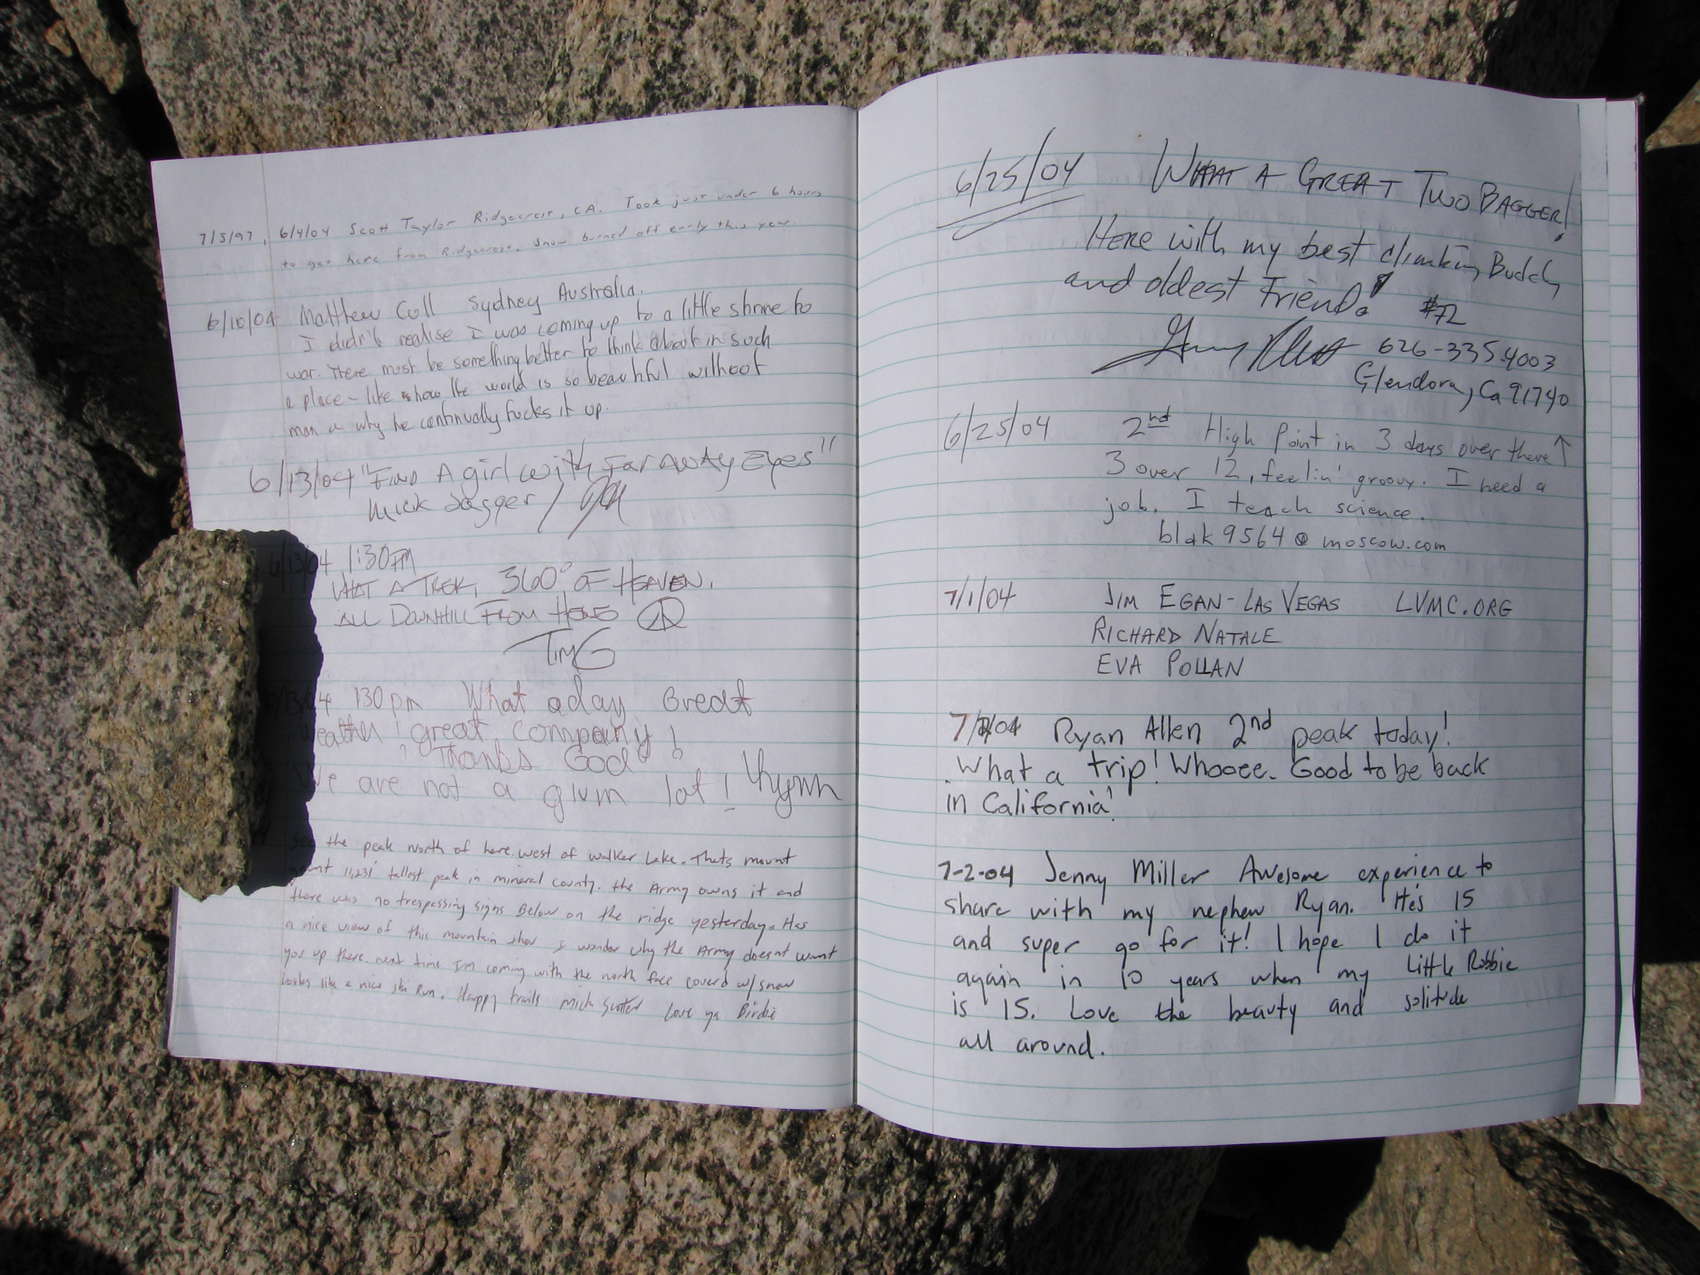 7/5/97, 6/4/04 Scott Taylor Ridgecrest, CA. Took just under 6 hours
to get here from Ridgecrest. Snow burned off early this year
6/10/04 Matthew Coll Sydney Australia.
I didn't realise I was coming up to a little shrine to
war. There must be something better to think about in such
a place - like how the world is so beautiful without
man or why he continually fucks it up.
6/13/04 "Find A girl with Far Away Eyes"
Mick Jagger /
6/13/04 1:30PM
WHAT A TREK, 360° OF HEAVEN.
ALL DOWNHILL FROM HERE
TIMG
/04 130 pm What a day Great
weather! great company!
Thanks God
We are not a glum lot!
See the peak north of here west of walker Lake. Thats mount
Grant 11,231' tallest peak in mineral county. the Army owns it and
there was no trespessing signs Below on the ridge yesterday. Has
a nice view of this mountain show I wonder why the Army doesnt want
you up there next time I'm coming with the north face coverd w/ snow
looks like a nice ski Run. Happy trails Mich Love ya Birdie
6/25/04 WHAT A GREAT TWO BAGGER!
HERE with my best climbing Buddy
and oldest Friend!
#72
626-335-4003
Glendora, Ca 91740
6/25/04 2nd High Point in 3 days over there ↑
3 over 12, feelin' groovy. I need a
job. I teach science.
blak9564@moscow.com
7/1/04 JIM EGAN - LAS VEGAS LVMC.ORG
RICHARD NATALE
EVA POLLAN
7/2/04 Ryan Allen 2nd peak today!
What a trip! Whooee. Good to be back
in California!
7-2-04 Jenny Miller Awesome experience to
share with my nephew Ryan. He's 15
and super go for it! I hope I do it
again in 10 years when my Little Robbie
is 15. Love the beauty and solitude
all around.